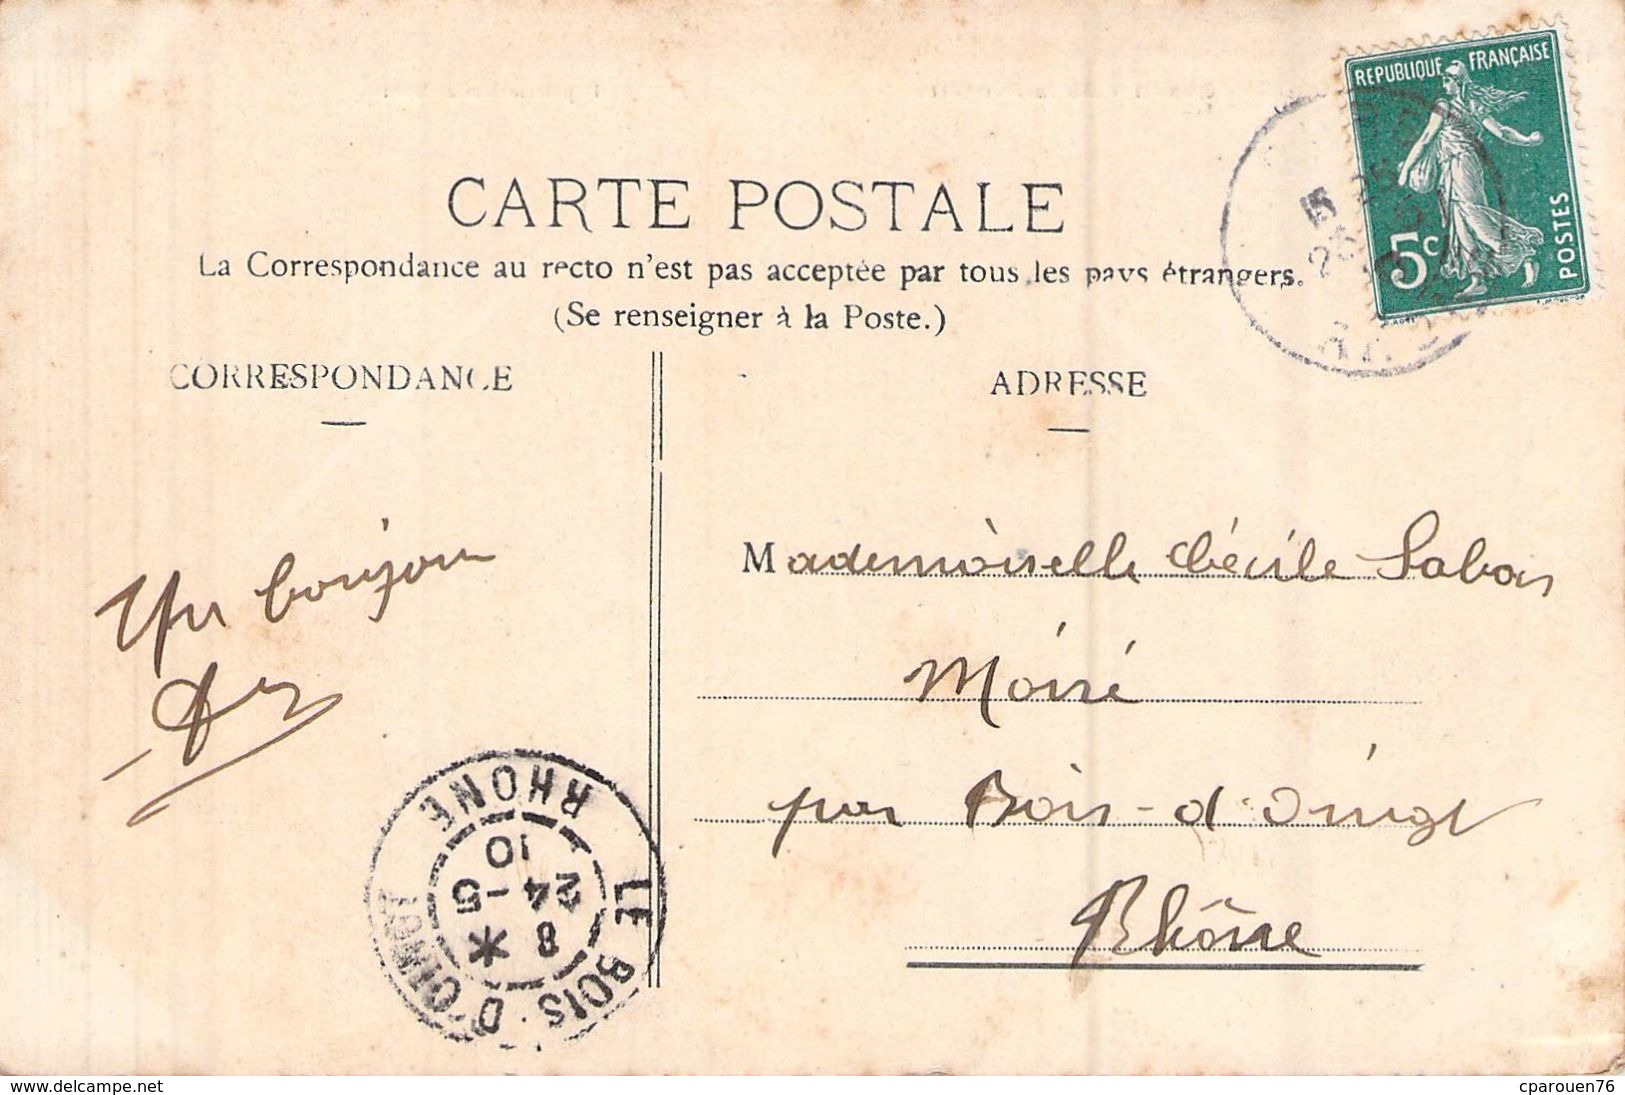 REPUBLIQUE FRANÇAISE
5c
POSTES
CARTE POSTALE
La Correspondance au recto n'est pas acceptée par tous les pays étrangers.
(Se renseigner à la Poste.)
CORRESPONDANCE
ADRESSE
bonjour
Mademoiselle Cécile
Moiré
par Bois-d'Oingt
Rhône
LE BOIS D'OINGT
RHONE
8 *
24 -5
10
delcampe.net
cparouen76